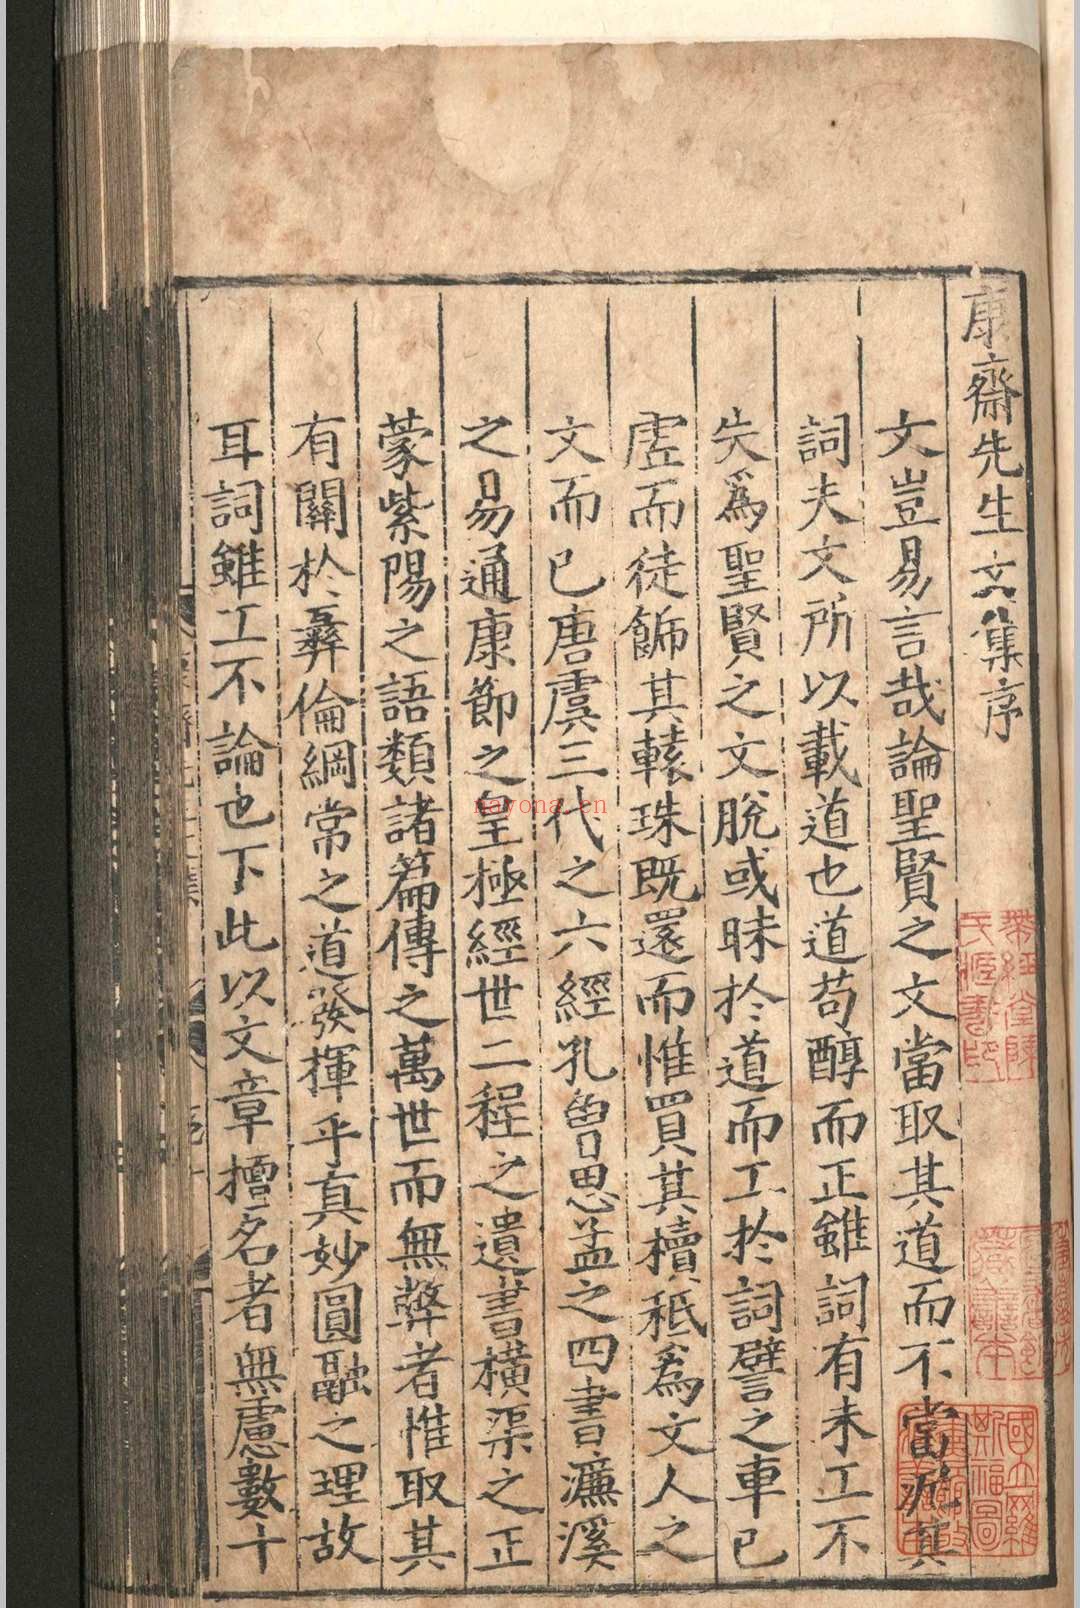 康齋先生文集序
文豈易言哉論聖賢之文當取其道而不當泥其
詞夫文所以載道也道苟醇而正雖詞有未工不
失爲聖賢之文脫或昧於道而工於詞譬之車已
虛而徒飾其轅珠旣還而惟買其櫝秪爲文人之
文而已唐虞三代之六經孔曾思孟之四書濂溪
之易通康節之皇極經世二程之遺書橫渠之正
蒙紫陽之語類諸篇傳之萬世而無弊者惟取其
有關於彞倫綱常之道發揮乎真妙圓融之理故
耳詞雖工不論也下此以文章擅名者無慮數十
nayona.cn